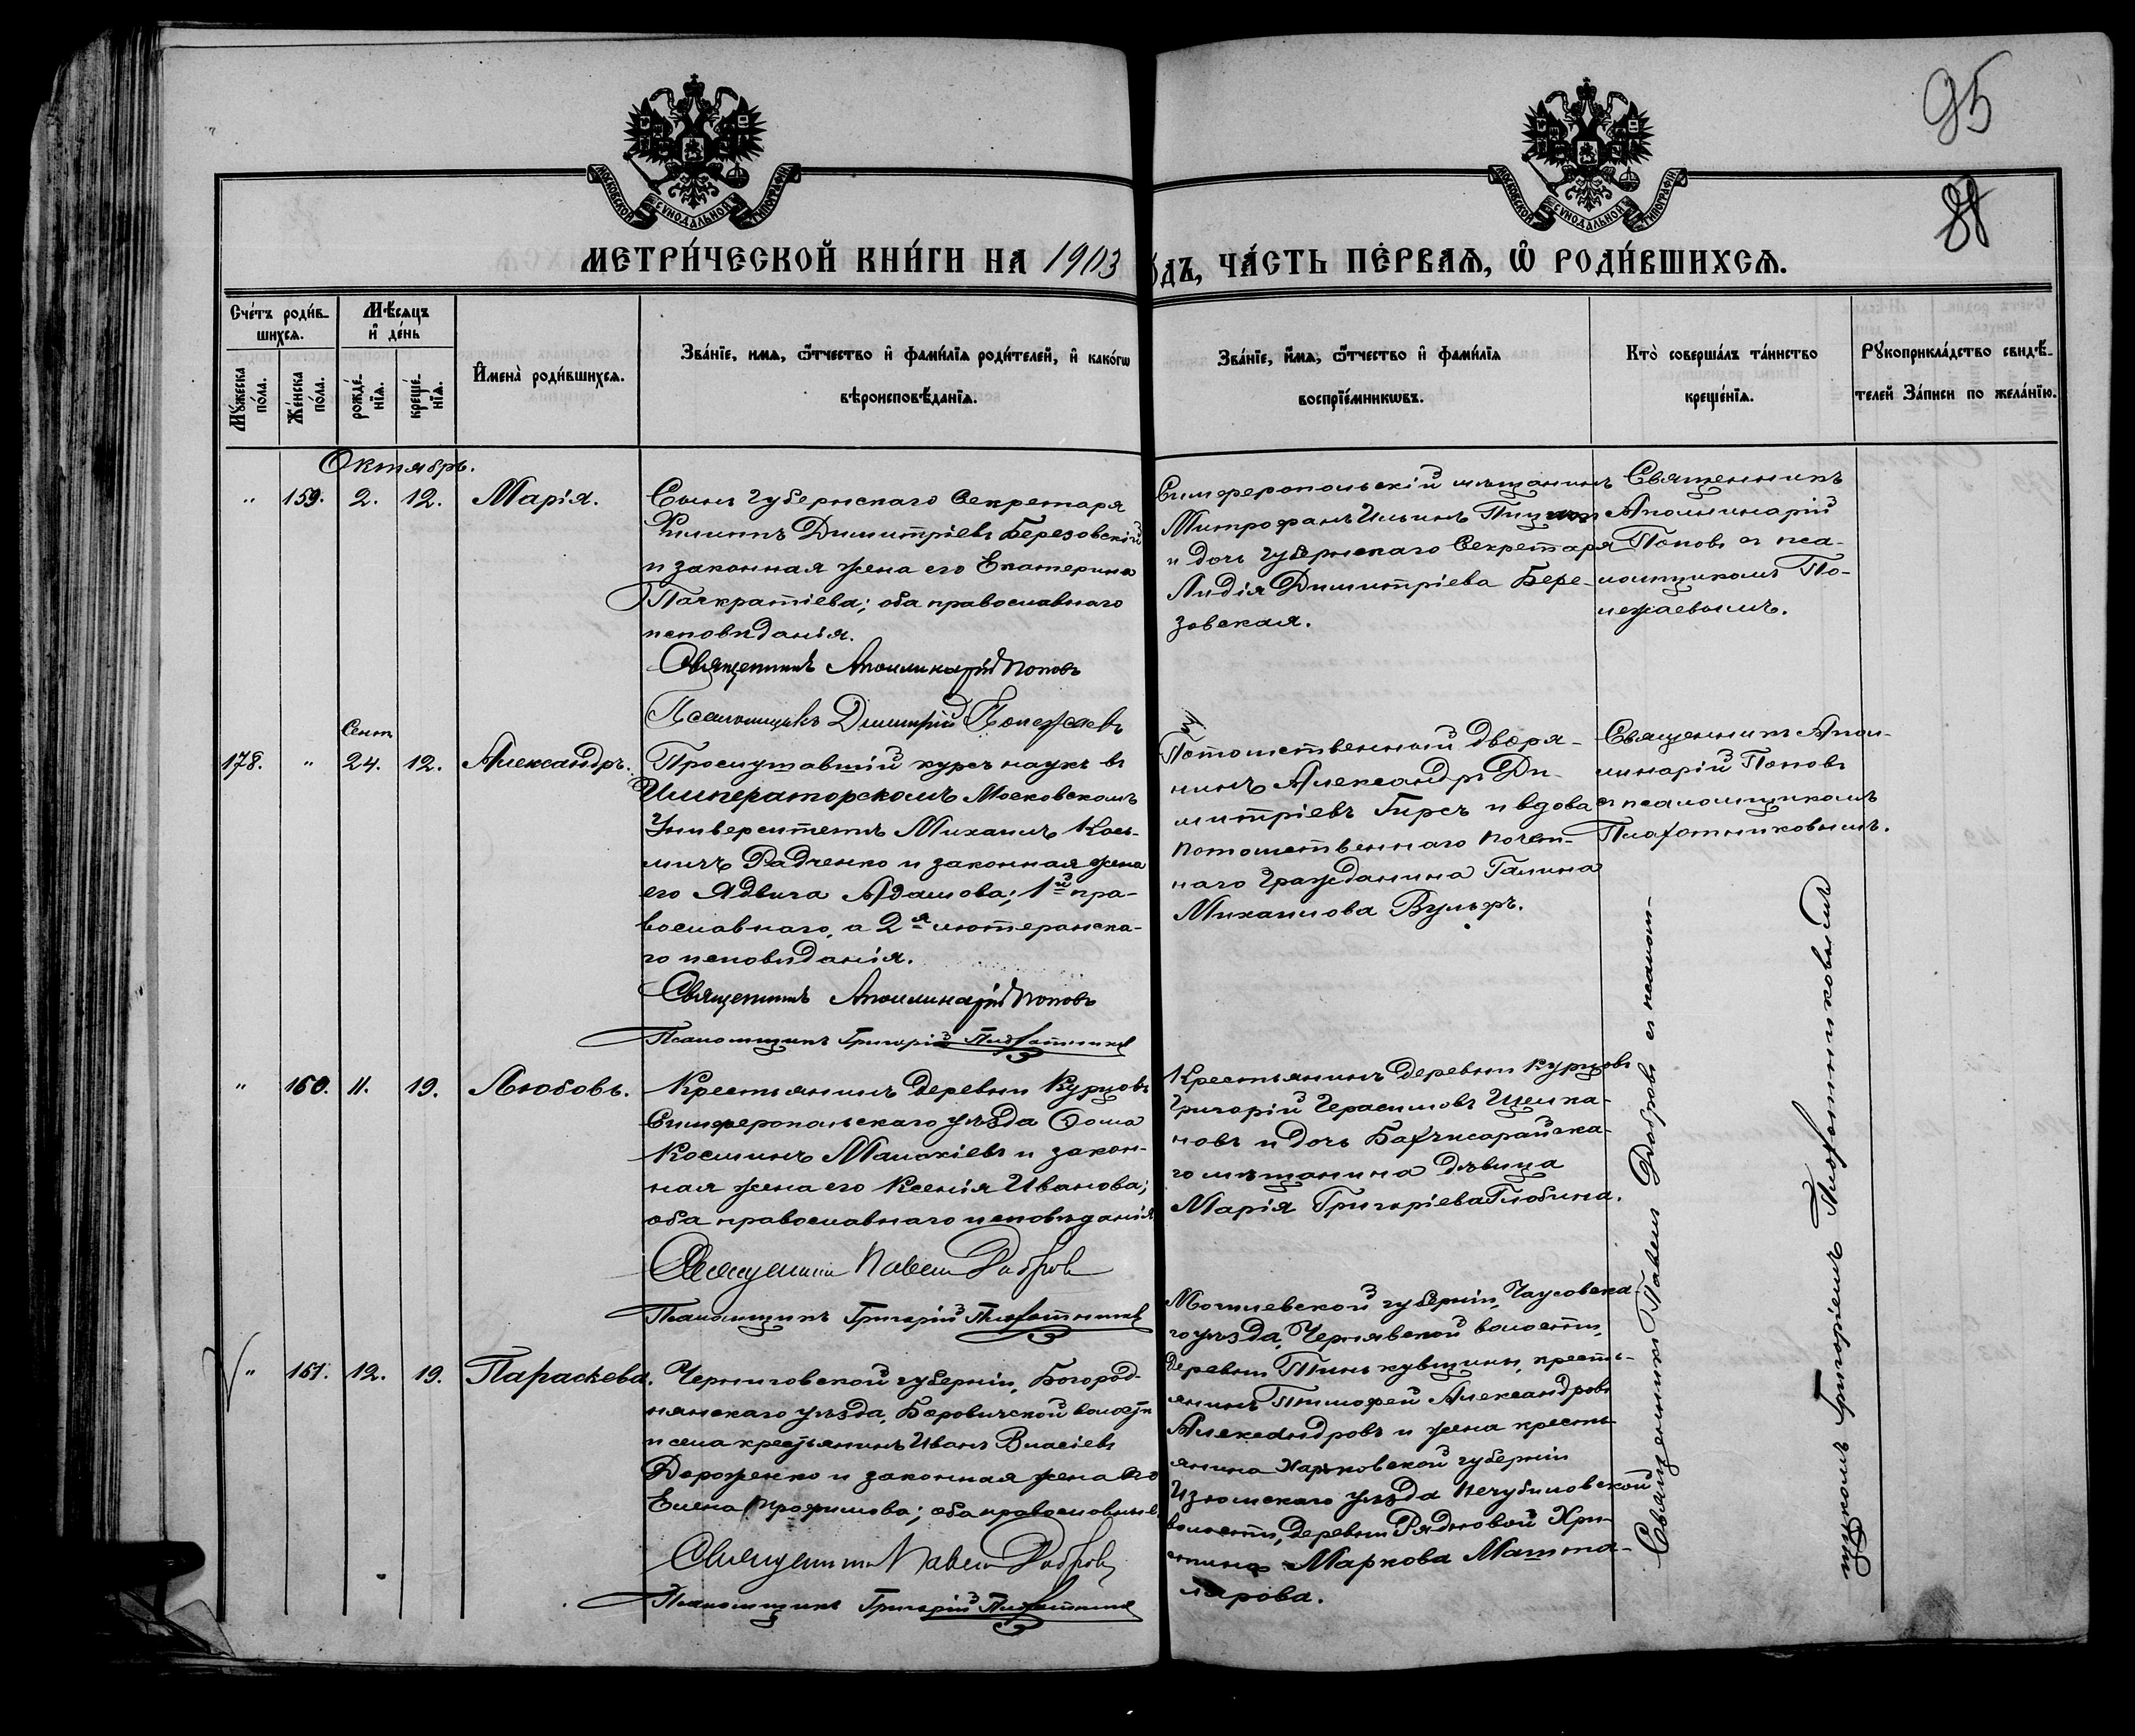 95
88
МОСКОВСКОЙ СѴНОДАЛЬНОЙ ТИПОГРАФІИ
МОСКОВСКОЙ СѴНОДАЛЬНОЙ ТИПОГРАФІИ
МЕТРИ́ЧЕСКОЙ КНИ́ГИ НА 1903
ѻ́ДЪ, ЧА́СТЬ ПЕ́РВАѦ, Ѡ҆ РОДИ́ВШИХСѦ.
Сче́тъ роди́в-
шихсѧ.
Мѣ́сѧцъ
и҆ де́нь
Мꙋ́жеска
по́ла.
Же́нска
по́ла.
рожде́-
нїѧ.
креще́-
нїѧ.
И҆мена̀ роди́вшихсѧ.
Зва́нїе, имѧ, ѻ҆́тчество и҆ фами́лїѧ роди́телей, и҆ како́гѡ
вѣроисповѣ́данїѧ.
Зва́нїе, и҆́мѧ, ѻ҆́тчество и҆ фами́лїѧ
воспрїе́мникѡвъ.
Кто̀ соверша́лъ та́инство
креще́нїѧ.
Рꙋкоприкла́дство свидѣ́-
телей За́писи по жела́нїю.
Октябрь.
" 159. 2. 12. Марія.
Сынъ Губернскаго Секретаря
Филиппъ Димитріевъ Березовскій
и законная жена его Екатерина
Панкратіева; оба православнаго
исповѣданія.
Священникъ Аполлинарій Поповъ
Псаломщикъ Димитрій Полежаевъ
Симферопольскій мѣщанинъ
Митрофанъ Ильинъ
и дочь Губернскаго Секретаря
Лидія Димитріева Бере-
зовская.
Священникъ
Аполлинарій
Поповъ съ пса-
ломщикомъ По-
лежаевымъ.
Сент.
178. " 24. 12. Александръ.
Прослушавшій курсъ наукъ въ
Императорскомъ Московскомъ
Университетѣ Михаилъ Кось-
мичъ Радченко и законная жена
его Ядвига Адамова; 1й пра-
вославнаго, а 2я лютеранска-
го исповѣданія.
Священникъ Аполлинарій Поповъ
Псаломщикъ Григорій Плохотниковъ
Потомственный дворя-
нинъ Александръ Ди-
митріевъ Гирсъ и вдова
потомственнаго почет-
наго Гражданина Галина
Михаилова Вульфъ.
Священникъ Апол-
линарій Поповъ
съ псаломщикомъ
Плохотниковымъ.
" 160. 11. 19. Любовь.
Крестьянинъ деревни Курцовъ
Симферопольскаго уѣзда Ѳома
Косминъ и закон-
ная жена его Ксенія Иванова;
оба православнаго исповѣданія
Священникъ Павелъ Добровъ
Псаломщикъ Григорій Плохотниковъ
Крестьянинъ деревни Курцовъ
Григорій Герасимовъ Шелка-
новъ и дочь Бахчисарайска-
го мѣщанина дѣвица
Марія Григоріева Глобина.
" 161. 12. 19. Параскева.
Черниговской губерніи, Богород-
нянскаго уѣзда, Боровичской волости
и села крестьянинъ Иванъ Власіевъ
Дороженко и законная жена его
Елена Трофимова; оба православные
Священникъ Павелъ Добровъ
Псаломщикъ Григорій Плохотниковъ
Могилевской губерніи, Чаусовска-
го уѣзда, Чернявской волости,
деревни крестъ-
янинъ Тимофей Александровъ
Александровъ и жена кресть-
янина Харьковской губерніи
Изюмскаго уѣзда
волости, деревни Рядновой Хри-
стина Маркова Машта-
лярова.
Священникъ Павелъ Добровъ съ псалом-
щикомъ Григоріемъ Плохотниковымъ